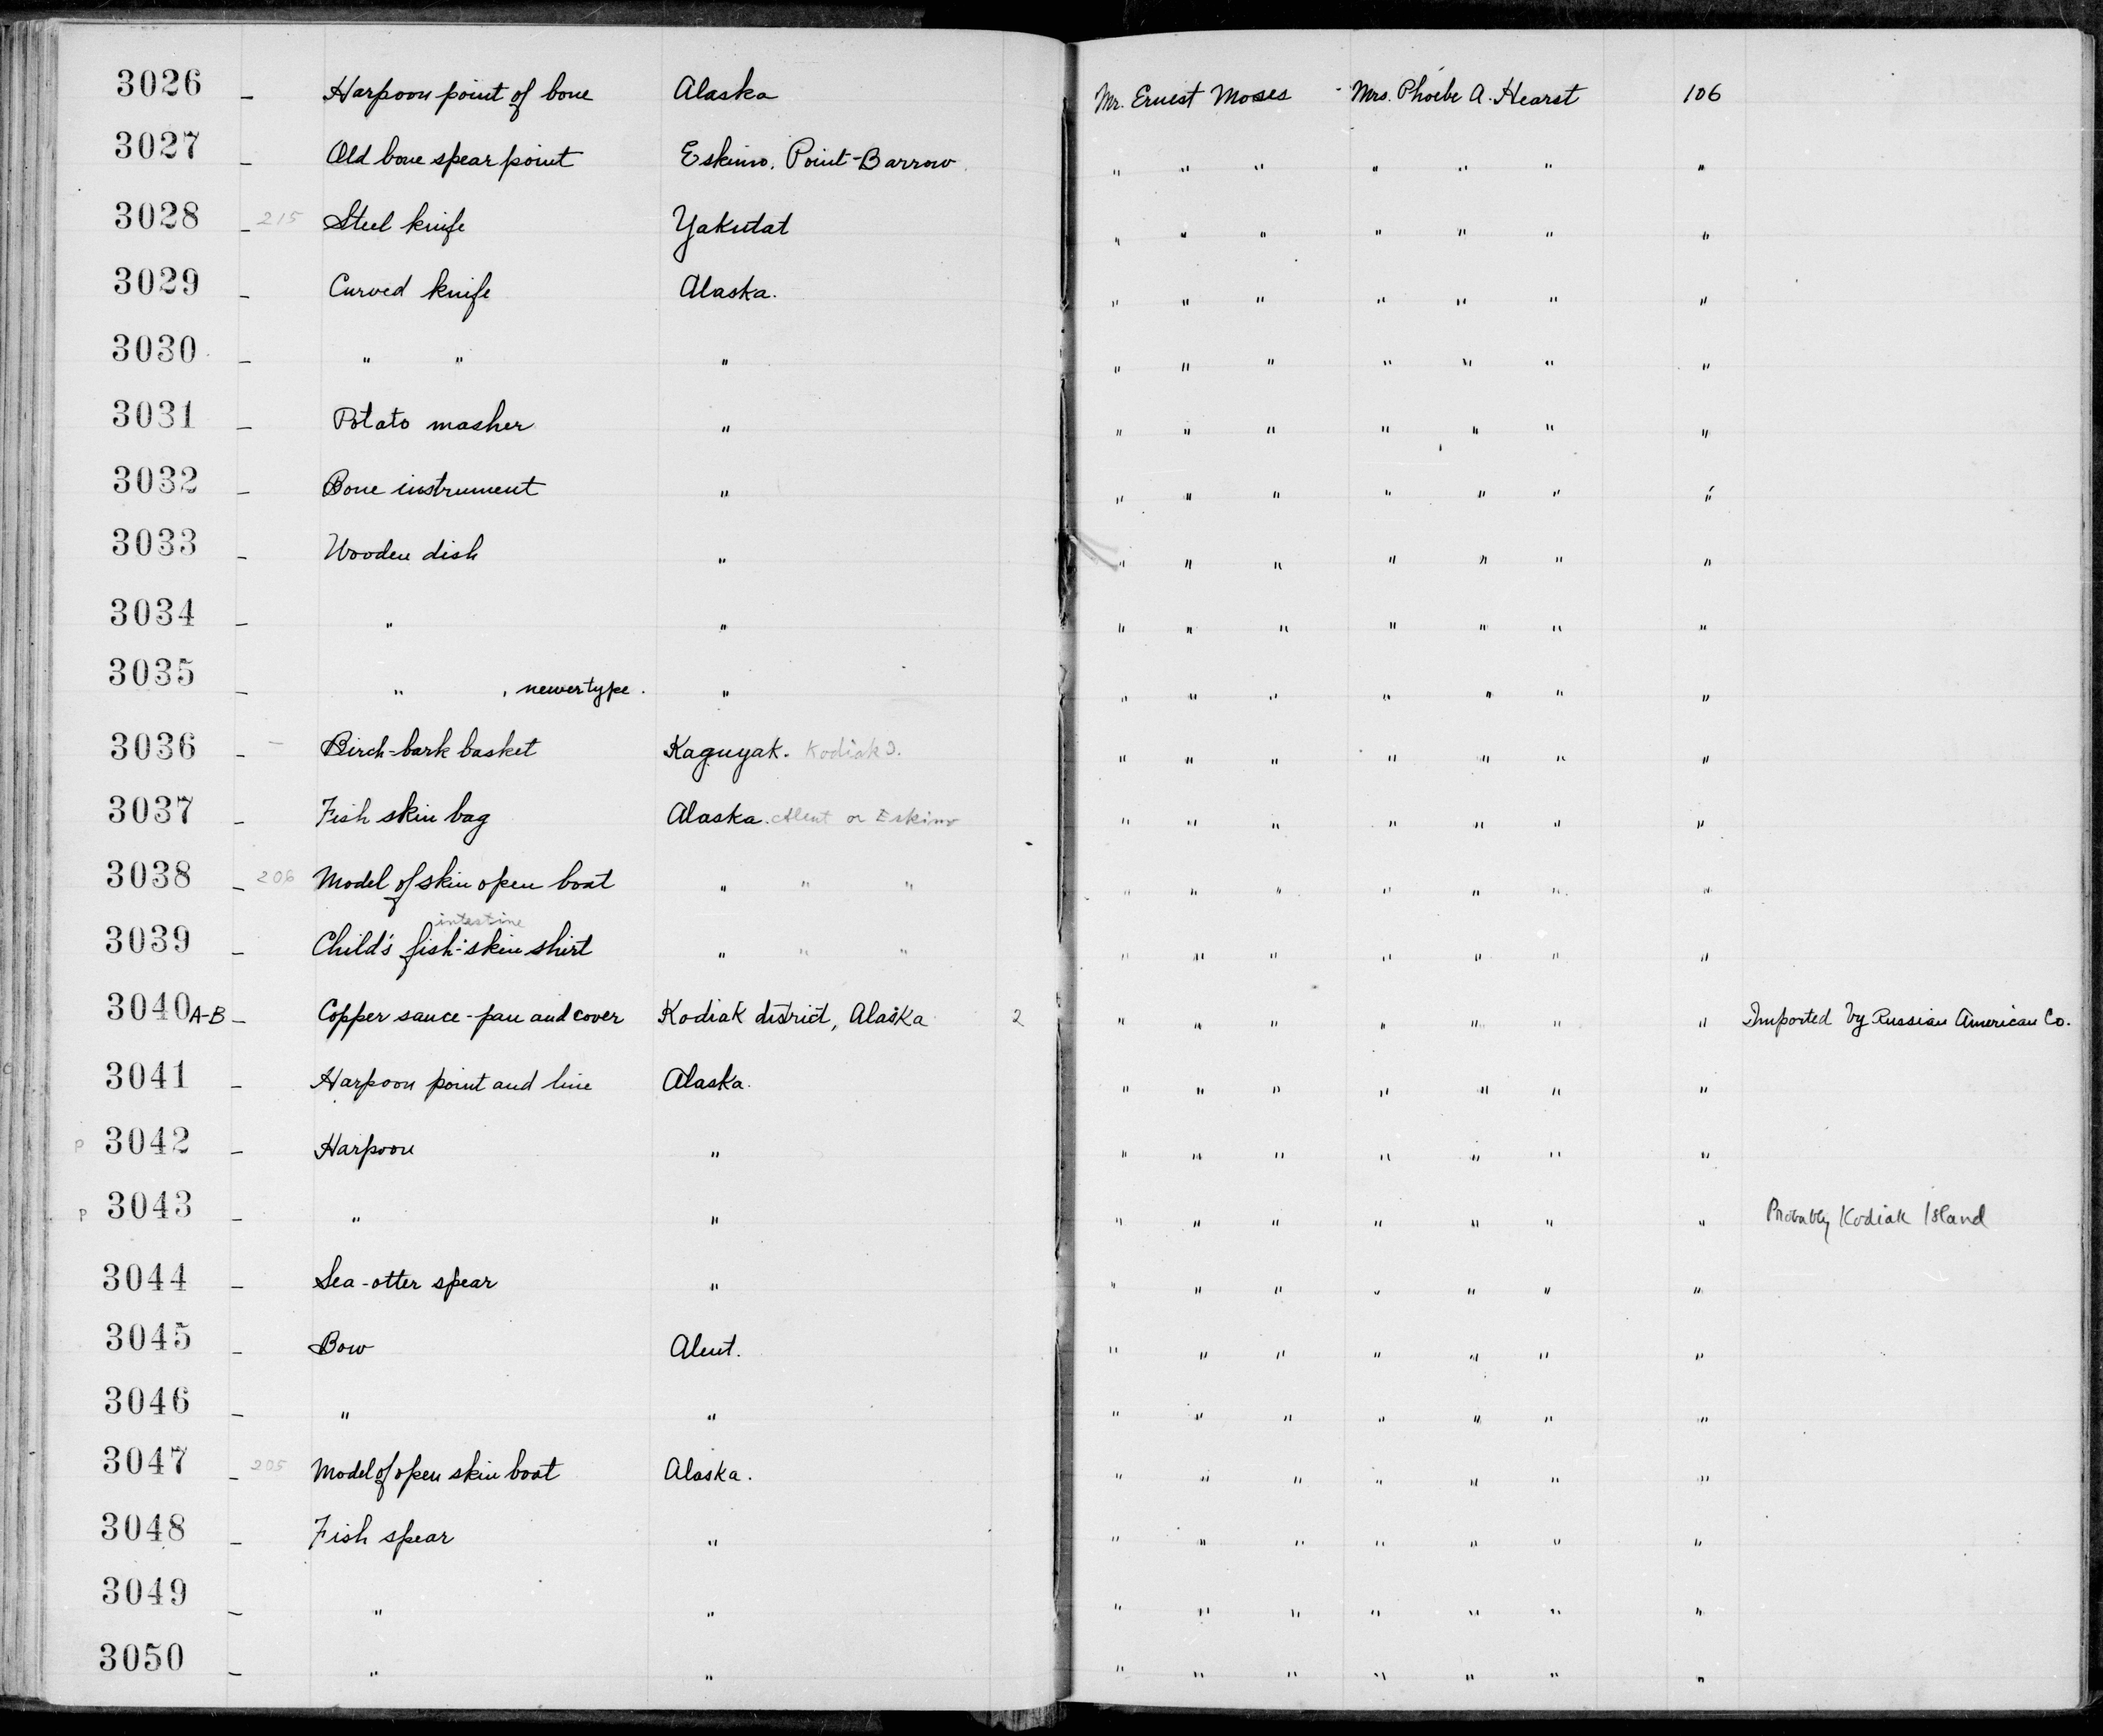 3026 – Harpoon point of bone Alaska Mr. Ernest Moses Mrs. Phoebe A. Hearst 106
3027 – Old bone spear point Eskimo. Point-Barrow. " " " " " " "
3028 – 215 Steel knife Yakutat " " " " " " "
3029 – Curved knife Alaska. " " " " " " "
3030 – " " " " " " " " " "
3031 – Potato masher " " " " " " " "
3032 – Bone instrument " " " " " " " "
3033 – Wooden dish " " " " " " " "
3034 – " " " " " " " " "
3035 – " , newer type. " " " " " " " "
3036 – – Birch-bark basket Kaguyak. Kodiak I. " " " " " " "
3037 – Fish skin bag Alaska. Aleut or Eskimo " " " " " " "
3038 – 206 Model of skin open boat " " " " " " " " " "
intestine
3039 – Child's fish-skin shirt " " " " " " " " " "
3040 A-B – Copper sauce-pan and cover Kodiak district, Alaska 2 " " " " " " " Imported by Russian American Co.
3041 – Harpoon point and line Alaska. " " " " " " "
P 3042 – Harpoon " " " " " " " "
P 3043 – " " " " " " " " " Probably Kodiak Island
3044 – Sea-otter spear " " " " " " " "
3045 – Bow Aleut. " " " " " " "
3046 – " " " " " " " " "
3047 – 205 Model of open skin boat Alaska. " " " " " " "
3048 – Fish spear " " " " " " " "
3049 – " " " " " " " " "
3050 – " " " " " " " " "